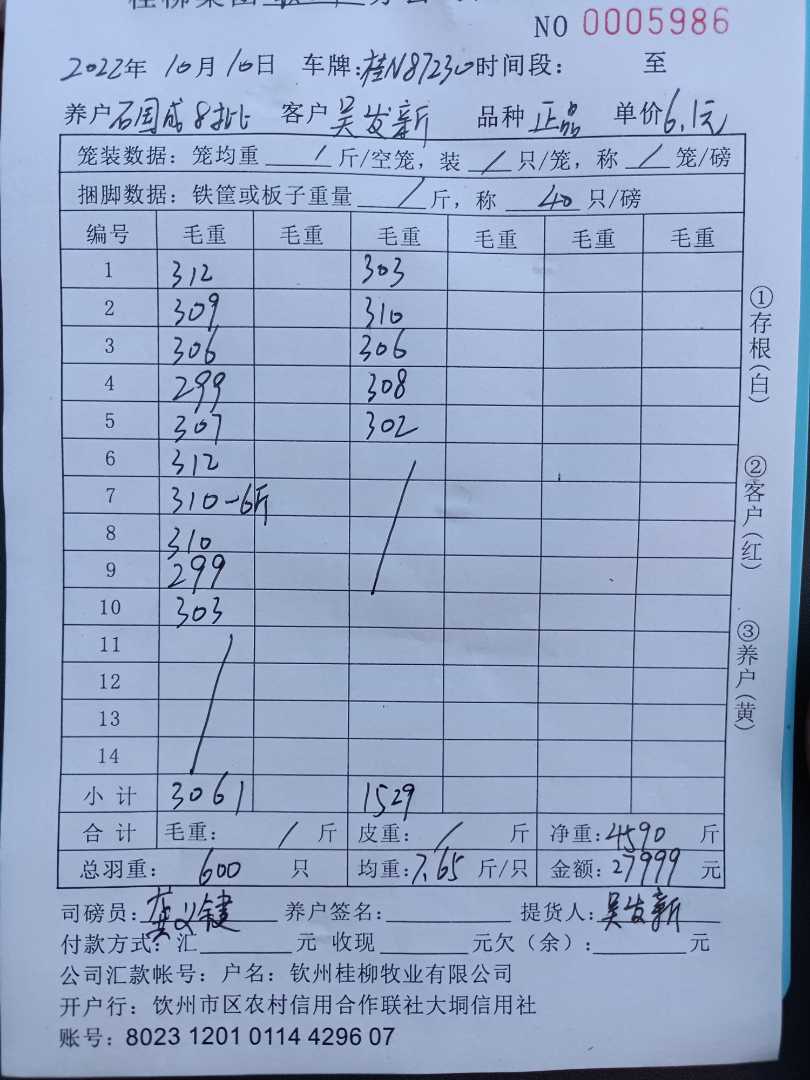 NO 0005986
2022年 10月 10日 车牌:桂N87230 时间段: 至
养户 石国成 8批 客户 吴发新 品种 正品 单价 6.1元
笼装数据: 笼均重 / 斤/空笼, 装 / 只/笼, 称 / 笼/磅
捆脚数据: 铁筐或板子重量 / 斤, 称 40 只/磅
编号 毛重 毛重 毛重 毛重 毛重 毛重
1 312 303
2 309 310
3 306 306
4 299 308
5 307 302
6 312
7 310-6斤
8 310
9 299
10 303
11
12
13
14
小 计 3061 1529
合 计 毛重: / 斤 皮重: / 斤 净重: 4590 斤
总羽重: 600 只 均重: 7.65 斤/只 金额: 27999 元
司磅员: 义键 养户签名: 提货人: 吴发新
付款方式: 汇 元 收现 元欠（余）: 元
公司汇款帐号: 户名: 钦州桂柳牧业有限公司
开户行: 饮州市区农村信用合作联社大垌信用社
账号: 8023 1201 0114 4296 07
①存根(白)
②客户(红)
③养户(黄)